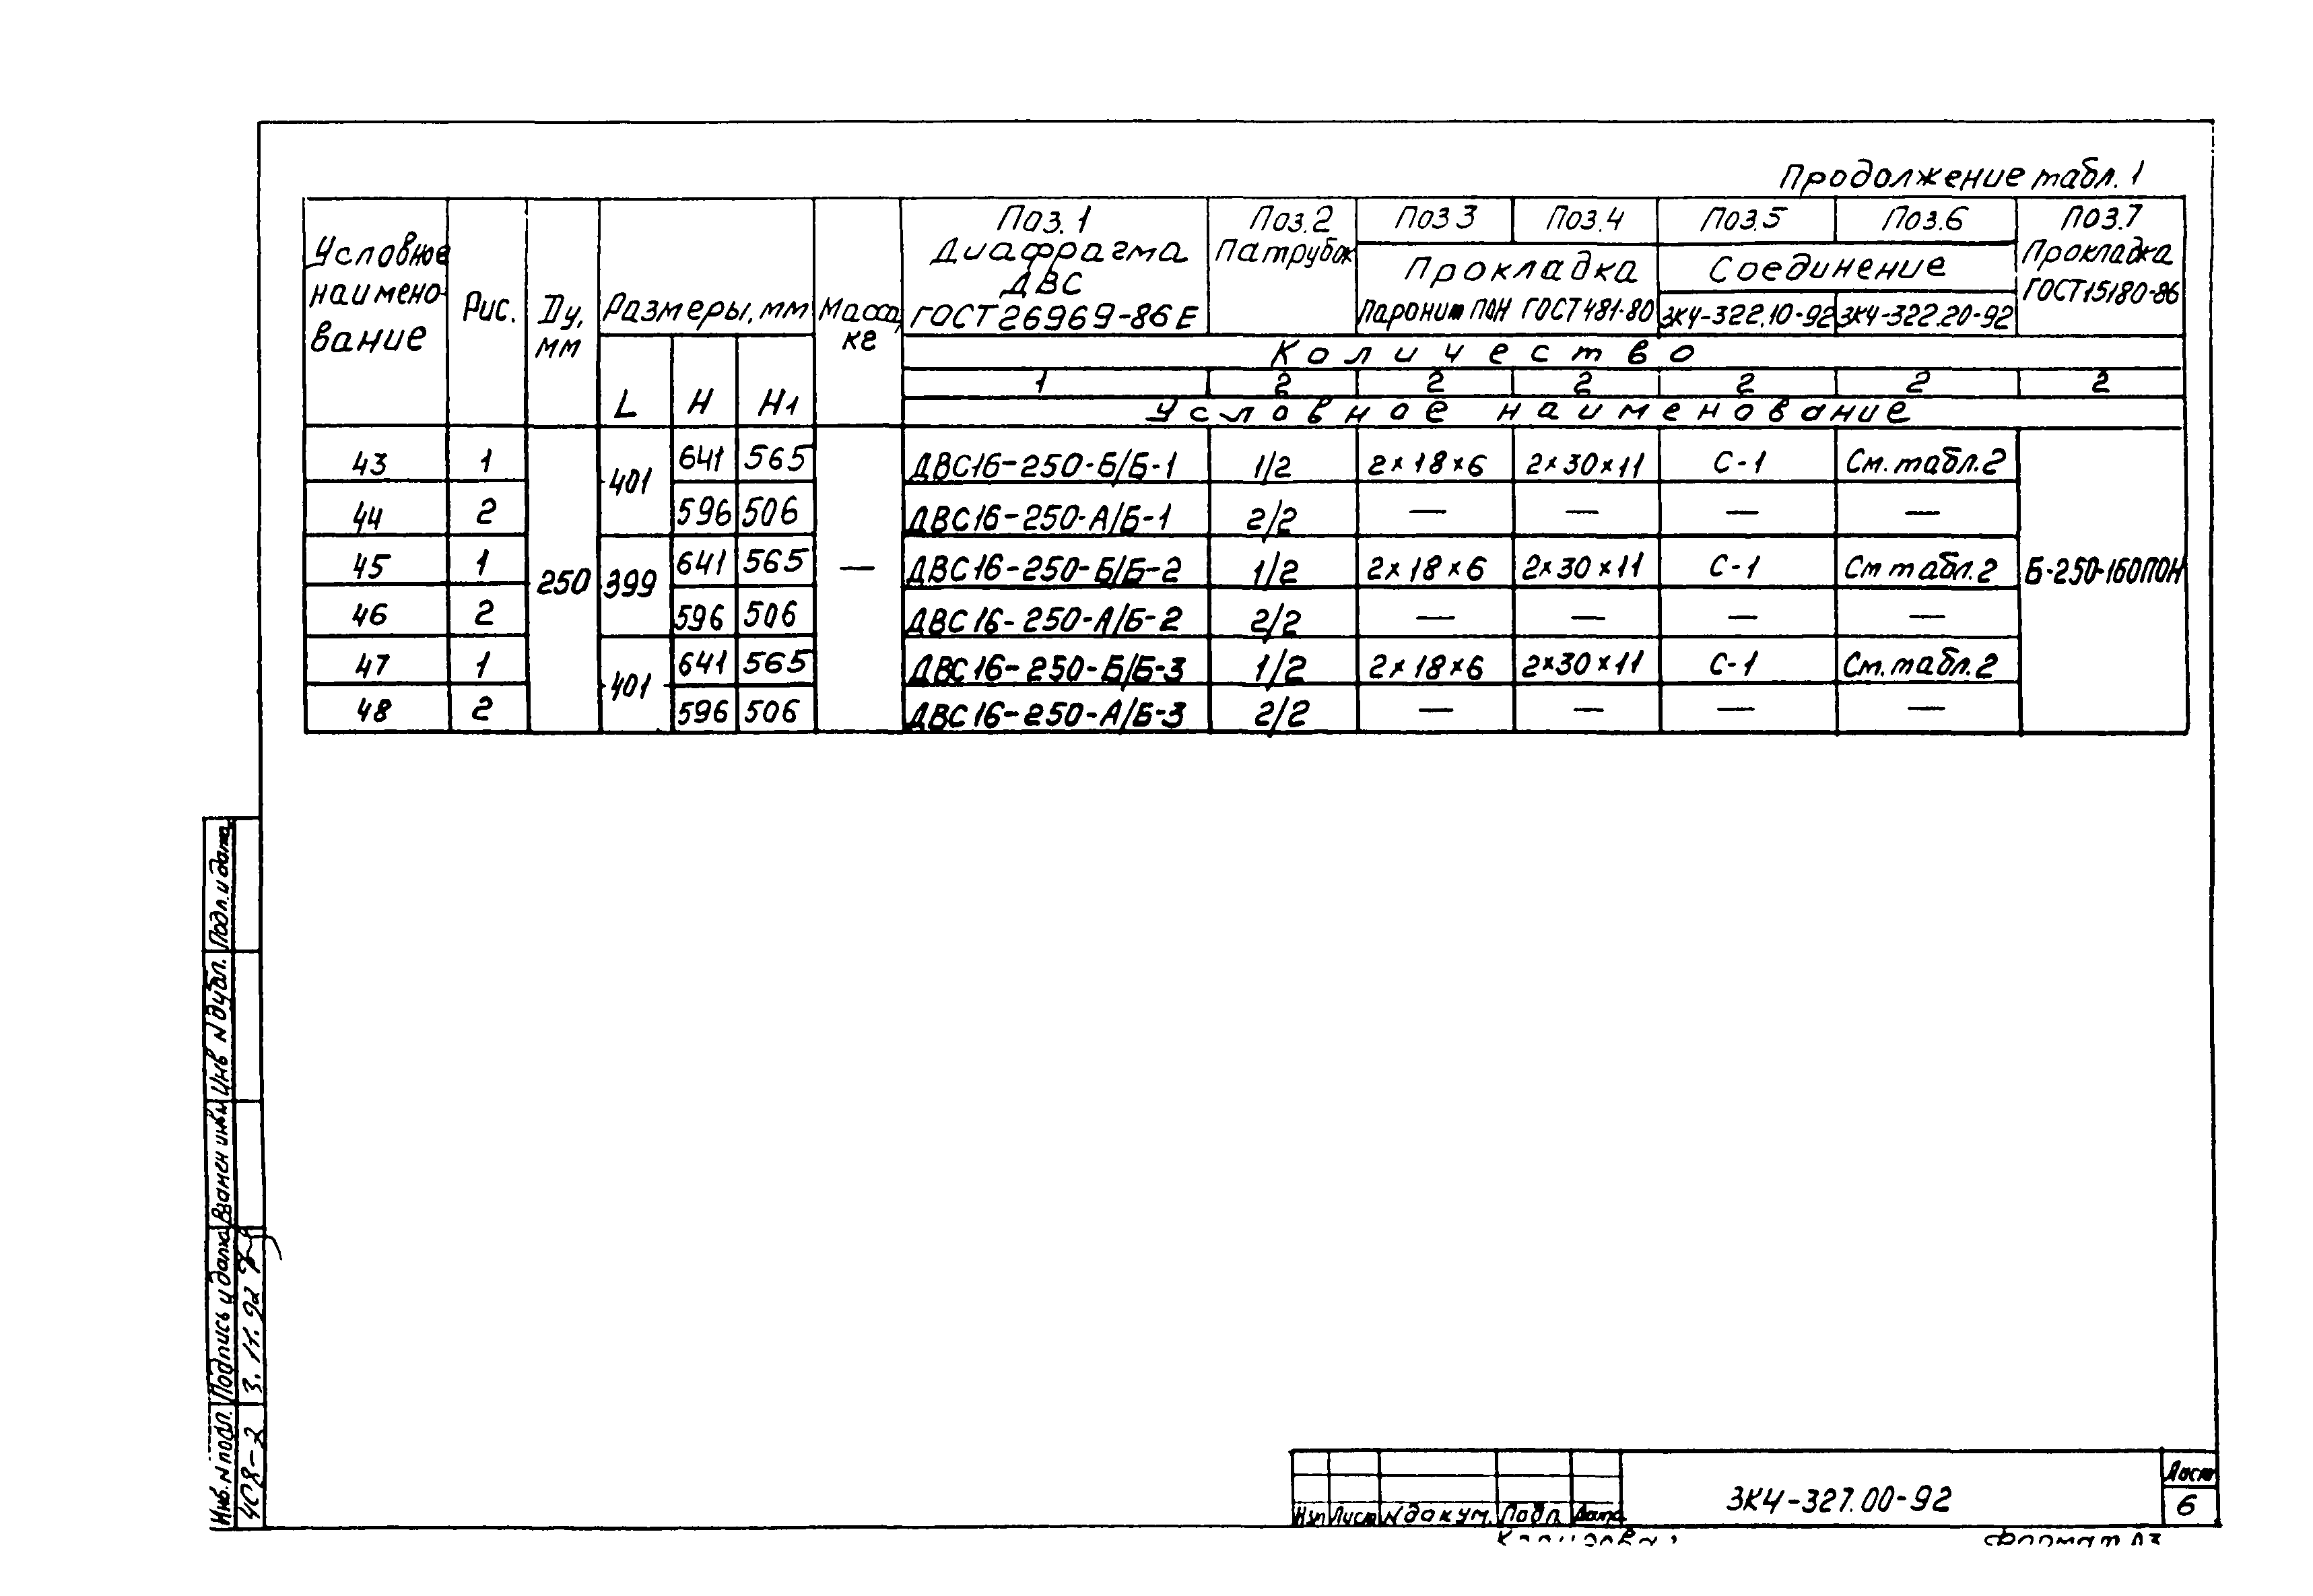 Продолжение табл. 1
Условное наимено- вание Рис. Ду, мм Размеры, мм Масса, кг Поз. 1 Диафрагма ДВС ГОСТ 26969-86Е Поз. 2 Патрубок Поз 3 Поз. 4 Поз. 5 Поз. 6 Поз. 7 Прокладка ГОСТ 15180-86
Прокладка Соединение
Паронит ПОН ГОСТ 481-80 ЗК4-322.10-92 ЗК4-322.20-92
Количество
L H H1 1 2 2 2 2 2 2
Условное наименование
43 1 250 401 641 565 — ДВС16-250-Б/Б-1 1/2 2×18×6 2×30×11 С-1 См. табл. 2 Б-250-160ПОН
44 2 596 506 ДВС16-250-А/Б-1 2/2 — — — —
45 1 399 641 565 ДВС16-250-Б/Б-2 1/2 2×18×6 2×30×11 С-1 См табл. 2
46 2 596 506 ДВС16-250-А/Б-2 2/2 — — — —
47 1 401 641 565 ДВС16-250-Б/Б-3 1/2 2×18×6 2×30×11 С-1 См. табл. 2
48 2 596 506 ДВС16-250-А/Б-3 2/2 — — — —
Подл. и дата
Инв N дубл.
Взамен инв N
Подпись и дата 3. 11. 92
Инв. N подл.
Изм Лист N докум. Подп. Дата
ЗК4-327.00-92
Лист
6
Формат А3